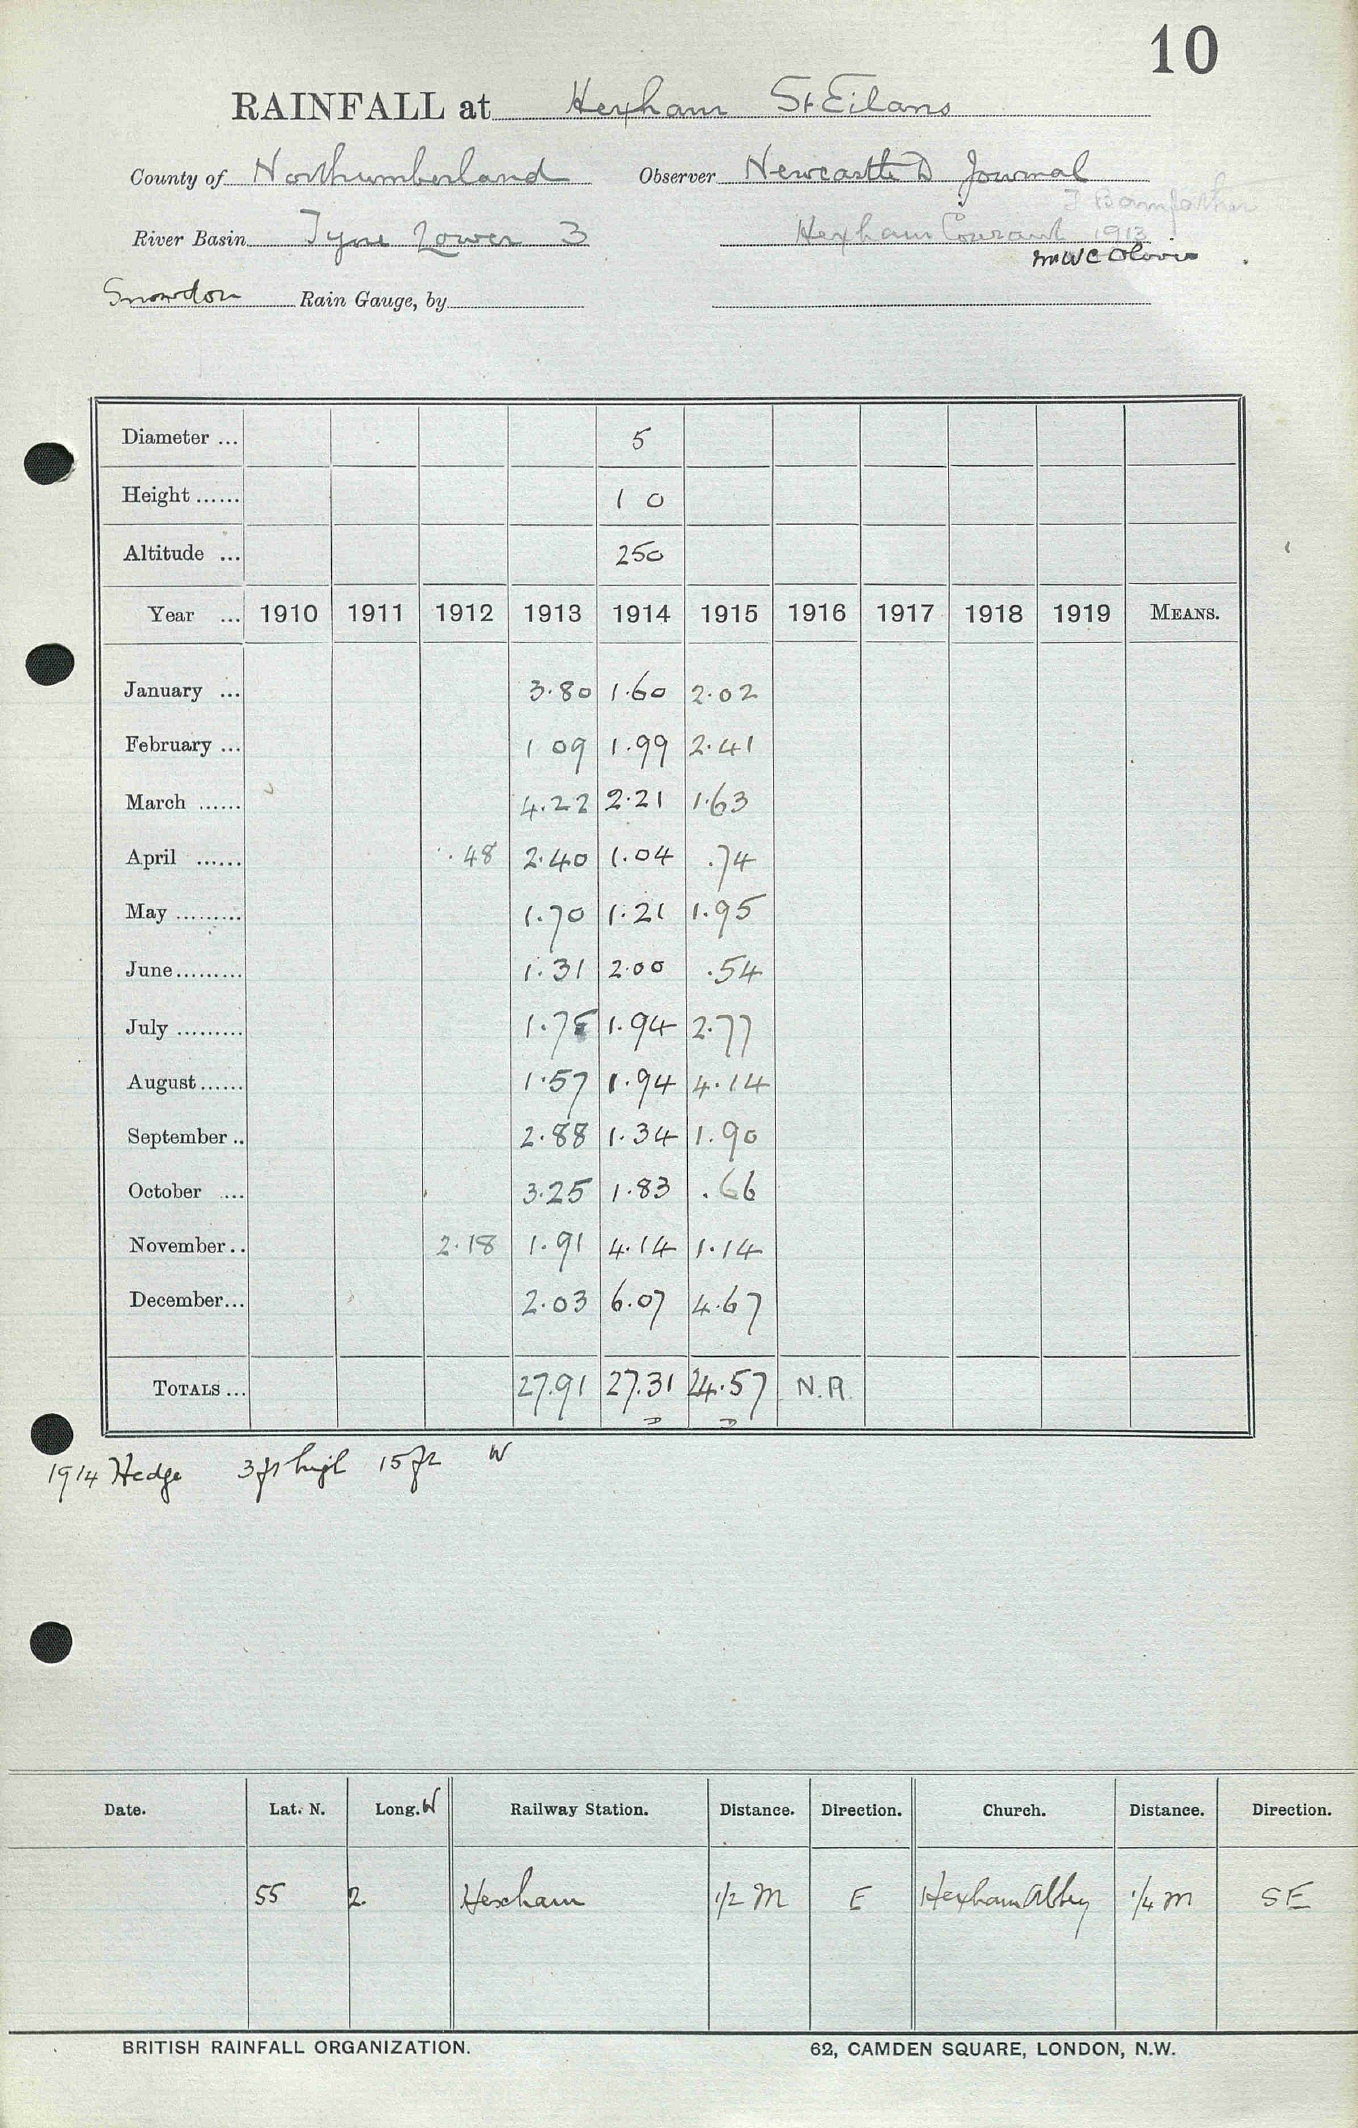 10
RAINFALL at Hexham St Eilans
County of Northumberland Observer Newcastle D Journal
J Bainfather
River Basin Tyne Lower 3 Hexham Courant 1913
Mr W C
Snowdon Rain Gauge, by
Diameter ... 5
Height ...... 1 0
Altitude ... 250
Year ... 1910 1911 1912 1913 1914 1915 1916 1917 1918 1919 MEANS.
January ... 3.80 1.60 2.02
February ... 1 09 1.99 2.41
March ...... 4.22 2.21 1.63
April ...... .48 2.40 1.04 .74
May ......... 1.70 1.21 1.95
June ......... 1.31 2.00 .54
July ......... 1.75 1.94 2.77
August ...... 1.57 1.94 4.14
September .. 2.88 1.34 1.90
October .... 3.25 1.83 .66
November .. 2.18 1.91 4.14 1.14
December ... 2.03 6.07 4.67
TOTALS ... 27.91 27.31 24.57 N.R.
1914 Hedge 3 ft high 15 ft W
Date. Lat. N. Long. W Railway Station. Distance. Direction. Church. Distance. Direction.
55 2. Hexham 1/2 M E Hexham Abbey 1/4 m SE
BRITISH RAINFALL ORGANIZATION. 62, CAMDEN SQUARE, LONDON, N.W.